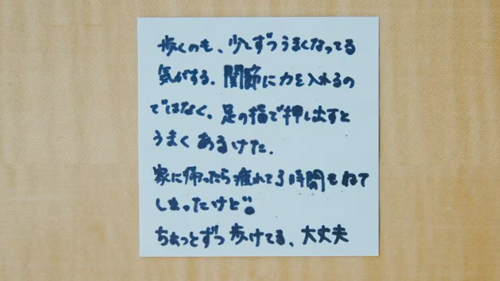 歩くのも、少しずつうまくなってる
気がする。関節に力を入れるの
ではなく、足の指で押し出すと
うまくあるけた.
家に帰ったら疲れて3時間もねて
しまったけど。
ちょっとずつ歩けてる、大丈夫